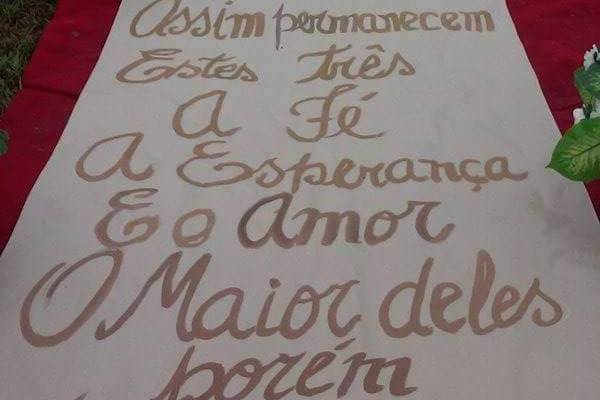 Assim permanecem
Estes três
A Fé
A Esperança
E o Amor
O Maior deles
porém